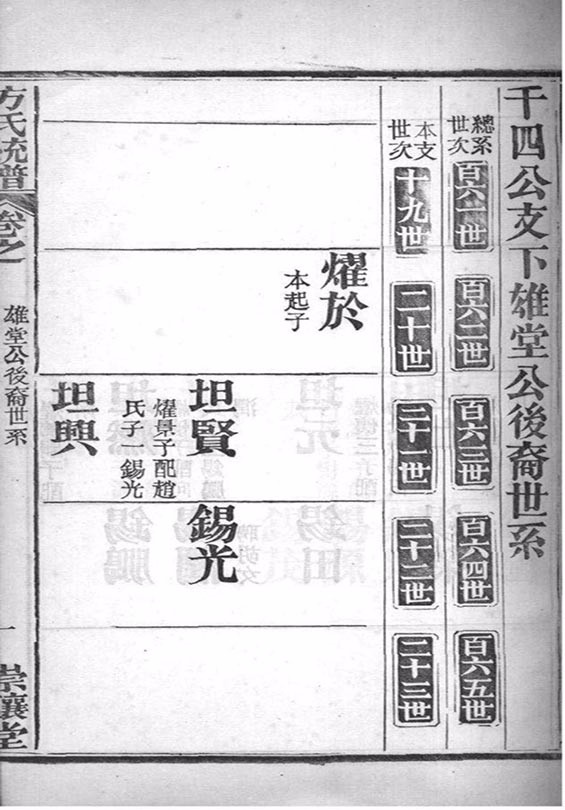 千四公支下雄堂公後裔世系
總系世次
百六一世
百六二世
百六三世
百六四世
百六五世
本支世次
十九世
二十世
二十一世
二十二世
二十三世
燿於
本起子
坦賢
燿景子配趙
氏子一錫光
錫光
坦興
方氏統譜
卷之一
雄堂公後裔世系
一
崇讓堂